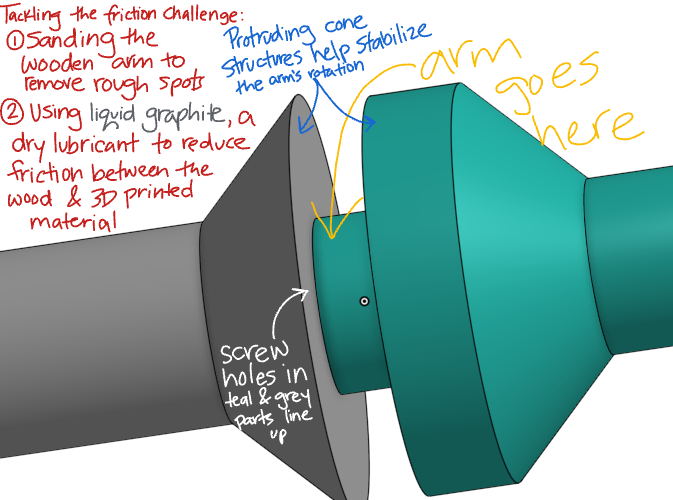 Tackling the friction challenge:
① Sanding the
wooden arm to
remove rough spots
② Using liquid graphite, a
dry lubricant to reduce
friction between the
wood & 3D printed
material
Protruding cone
structures help stabilize
the arm's rotation
arm
goes
here
screw
holes in
teal & grey
parts line
up